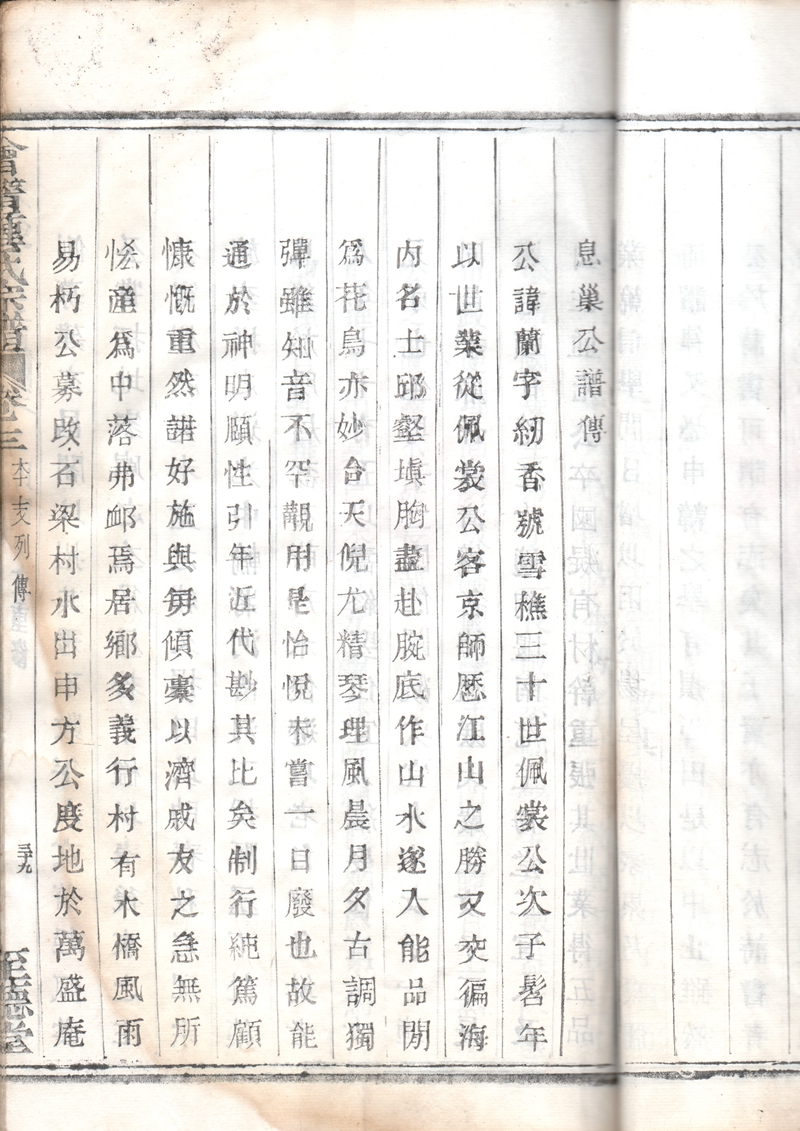 息巢公譜傳
公諱蘭字紉香號雪樵三十世佩裳公次子髫年
以世業從佩裳公客京師歷江山之勝又交徧海
內名士邱壑塡胸盡赴腕底作山水遂入能品閒
爲花鳥亦妙合天倪尤精琴理風晨月夕古調獨
彈雖知音不罕覯用是怡悅未嘗一日廢也故能
通於神明頤性引年近代尠其比矣制行純篤顧
慷慨重然諾好施與每傾橐以濟戚友之急無所
恡產爲中落弗卹焉居鄉多義行村有木橋風雨
易朽公募改石梁村水出申方公度地於萬盛庵
氏宗譜 卷三 本支列傳 三十九 至德堂